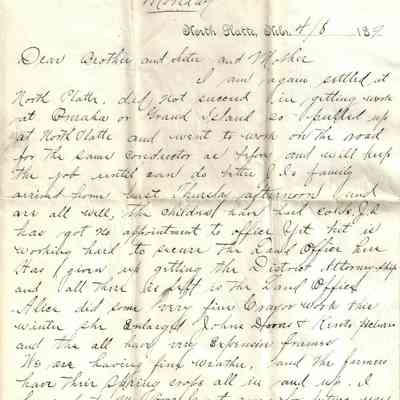 Monday
North Platte, Neb. 4/8 189
Dear Brother and sister and Mother
I am again settled at
North Platte. did not succeed in getting work
at Omaha or Grand Island so pulled up
at North Platte and went to work on the road
for the same conductor as before and will keep
the job until can do better
family
arrived home last Thursday afternoon and
are all well, the children have hard colds. J.
has got no appointment to office yet but is
working hard to secure the Land Office here
Has given up getting the District Attorneyship
and all there is left is the Land Office
Alice did some very fine Crayon work this
winter she Enlarged Johns
pictures
and the all have very Expensive frames
We are having fine weather, and the farmers
have their spring crops all in and up. I